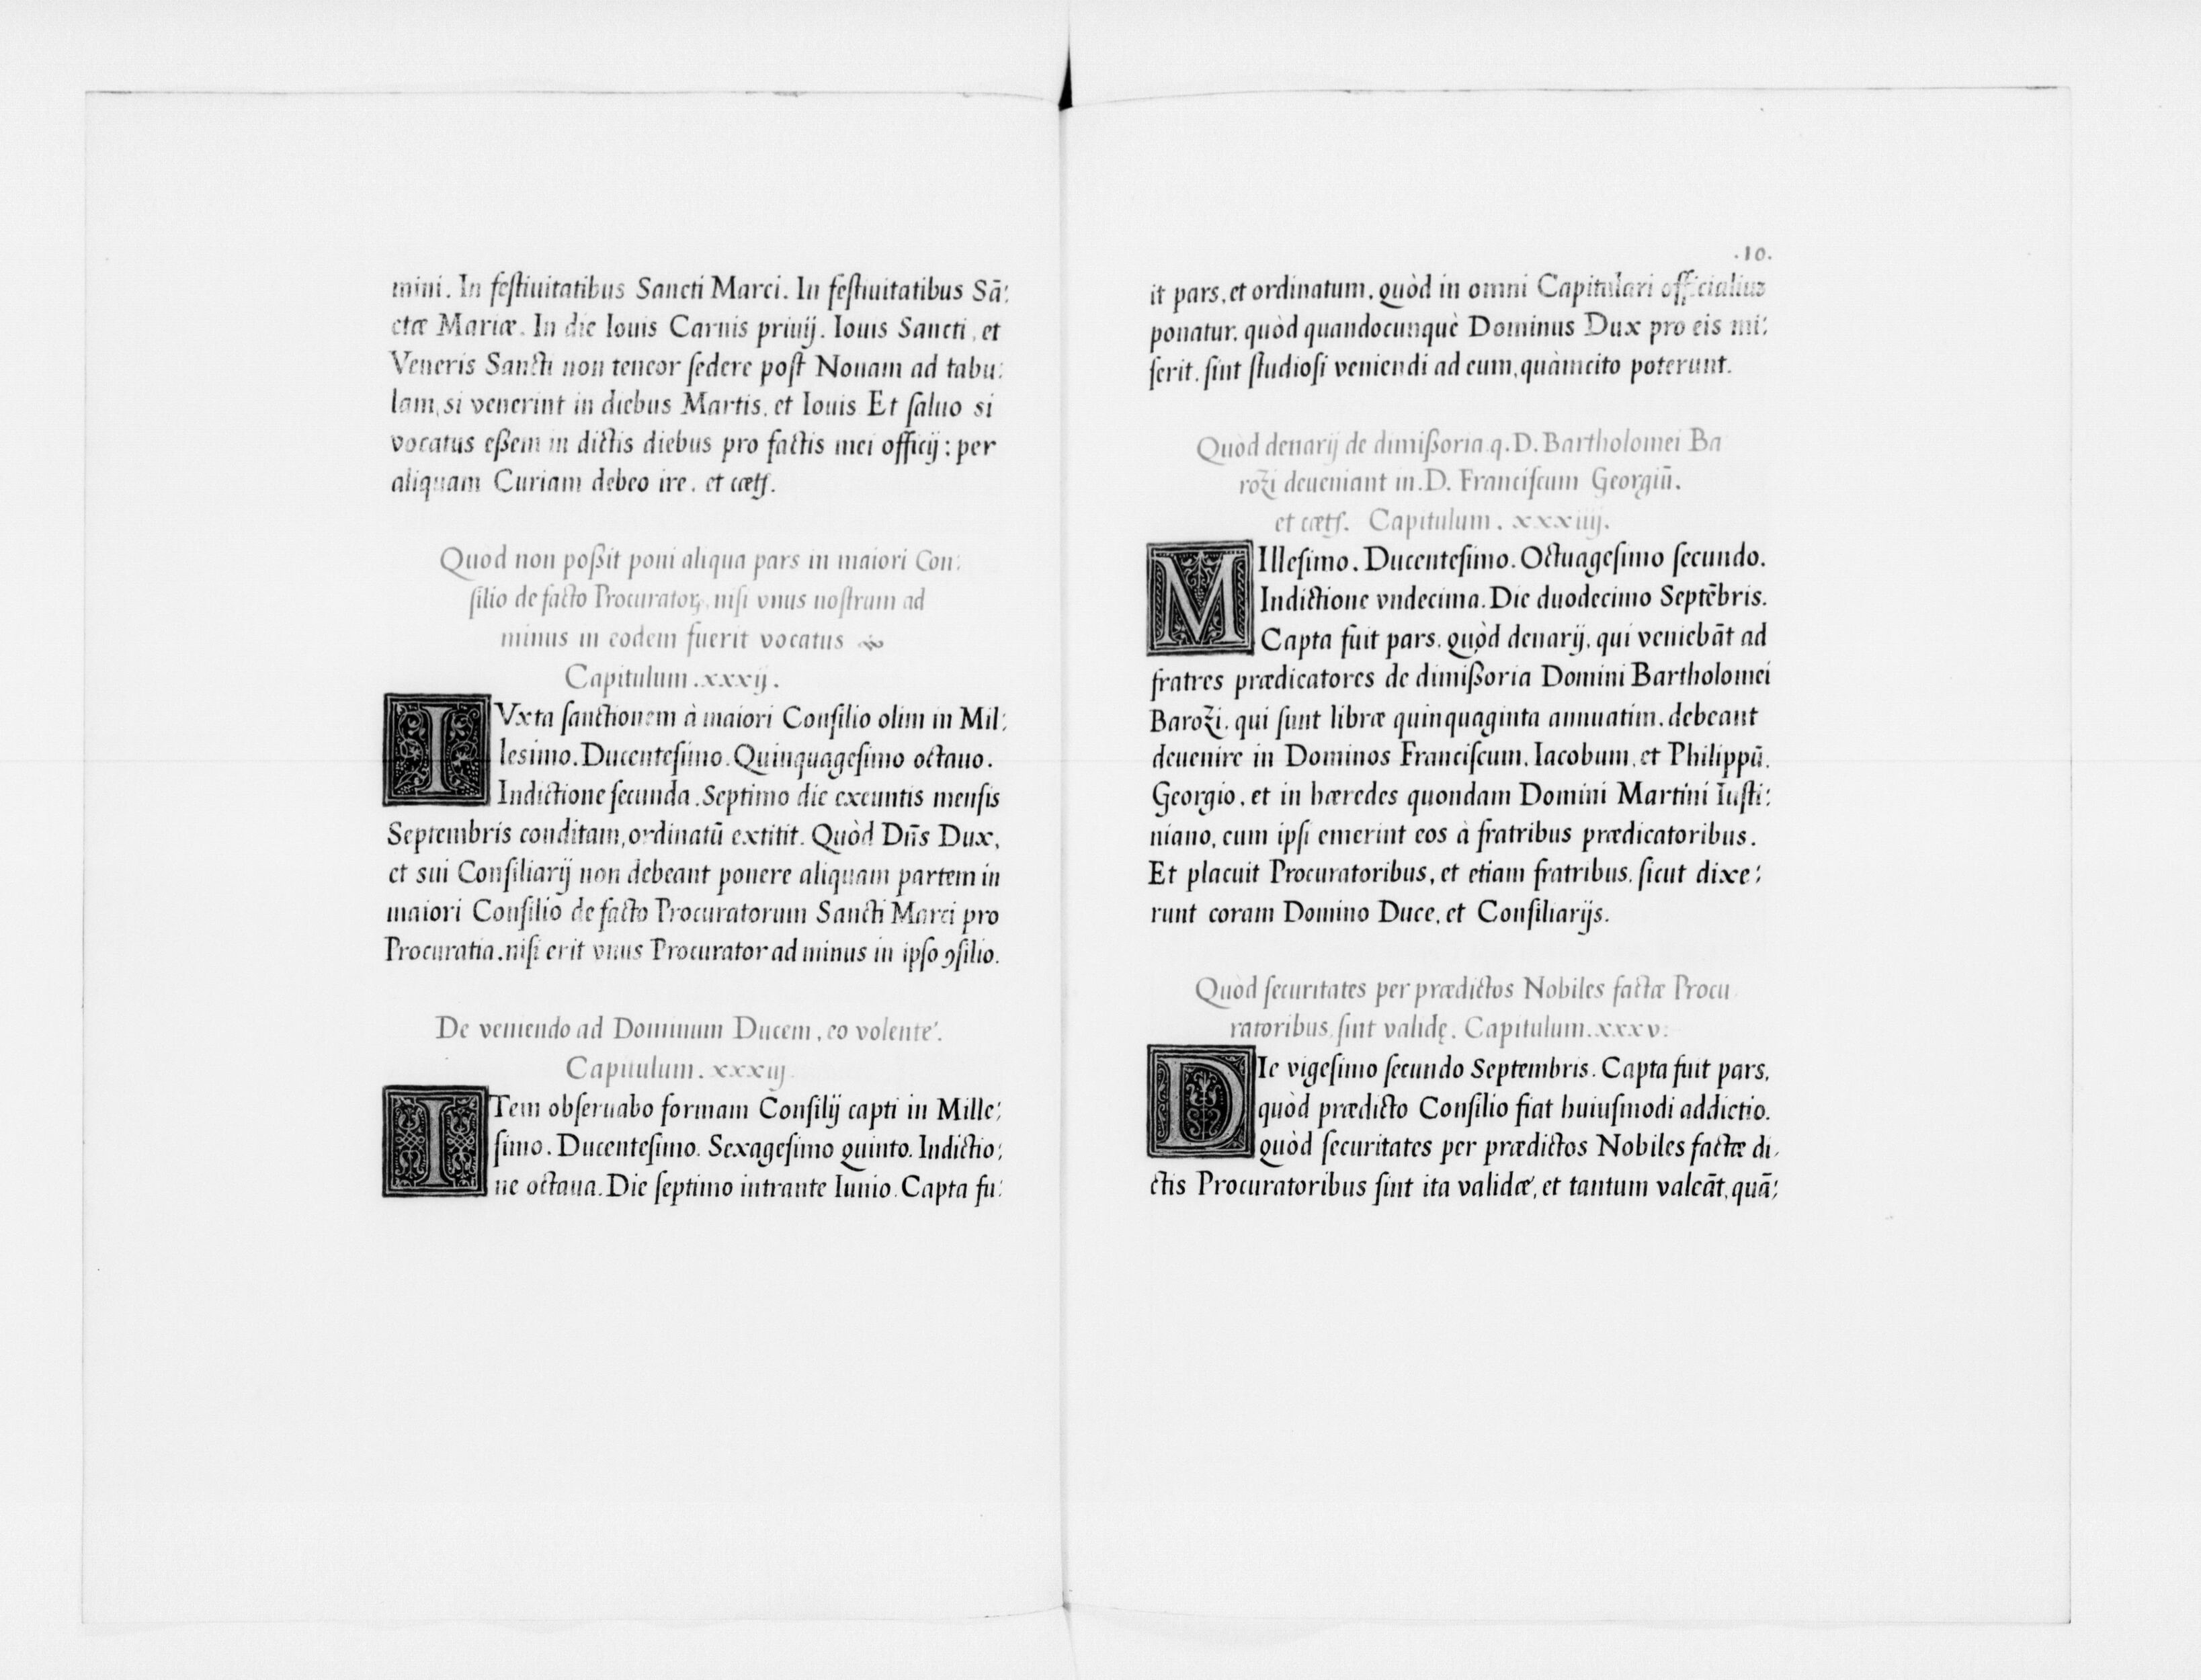 mini. In feſtiuitatibus Sancti Marci. In feſtiuitatibus Sā:
ctæ Mariæ. In die Iouis Carnis priuij. Iouis Sancti, et
Veneris Sancti non teneor ſedere poſt Nonam ad tabu:
lam, si venerint in diebus Martis, et Iouis Et ſaluo si
vocatus eßem in dictis diebus pro factis mei officij; per
aliquam Curiam debeo ire. et cætſ.
Quod non poßit poni aliqua pars in maiori Con:
ſilio de facto Procuratoꝝ, niſi vnus noſtrum ad
minus in eodem fuerit vocatus
Capitulum. xxxij.
IVxta ſanctionem à maiori Conſilio olim in Mil:
lesimo. Ducenteſimo. Quinquageſimo octauo.
Indictione ſecunda. Septimo die exeuntis mensis
Septembris conditam, ordinatū extitit. Quòd Dn̄s Dux,
et sui Conſiliarij non debeant ponere aliquam partem in
maiori Conſilio de facto Procuratorum Sancti Marci pro
Procuratia. niſi erit vnus Procurator ad minus in ipſo ꝯſilio.
De veniendo ad Dominum Ducem, eo volente.
Capitulum. xxxiij
ITem obſeruabo formam Conſilij capti in Mille:
ſimo. Ducenteſimo. Sexageſimo quinto. Indictio:
ne octaua. Die ſeptimo intrante Iunio. Capta fu:
.10.
it pars, et ordinatum, quòd in omni Capitulari officialiuꝫ
ponatur, quòd quandocunquè Dominus Dux pro eis mi:
ſerit, ſint ſtudioſi veniendi ad eum, quàmcito poterunt.
Quòd denarij de dimißoria q. D. Bartholomei Ba
rozi deueniant in. D. Franciſcum Georgiū.
et cætſ. Capitulum. xxxiiij.
MIlleſimo. Ducenteſimo. Octuageſimo ſecundo.
Indictione vndecima. Die duodecimo Septēbris.
Capta fuit pars, quòd denarij, qui veniebāt ad
fratres prædicatores de dimißoria Domini Bartholomei
Barozi, qui ſunt libræ quinquaginta annuatim, debeant
deuenire in Dominos Franciſcum, Iacobum, et Philippū,
Georgio, et in hæredes quondam Domini Martini Iuſti:
niano, cum ipſi emerint eos à fratribus prædicatoribus.
Et placuit Procuratoribus, et etiam fratribus, ſicut dixe:
runt coram Domino Duce, et Conſiliarijs.
Quòd ſecuritates per prædictos Nobiles factæ Procu
ratoribus, ſint validę. Capitulum. xxxv:
DIe vigeſimo ſecundo Septembris. Capta fuit pars,
quòd prædicto Conſilio fiat huiuſmodi addictio.
quòd ſecuritates per prædictos Nobiles factæ di,
ctis Procuratoribus ſint ita validæ, et tantum valeāt, quā: